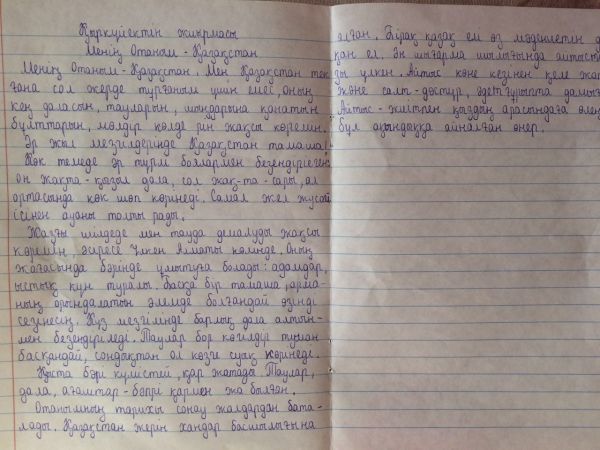 Қыркүйектің жиырмасы
Менің Отаным - Қазақстан
Менің Отаным - Қазақстан. Мен Қазақстан тек
ғана сол жерде тұрғаным үшін емес, оның
кең даласын, тауларын, шыңдарына қанатын
бұлттарын, мөлдір көлде рін жақсы көремін.
Әр жыл мезгілдерінде Қазақстан тамаша!
Көк төмеде әр түрлі бояулармен безендірілген:
он жақта - қызыл дала, сол жақ-та - сары, ал
ортасында көк шөп көрінеді. Самал жел жусан
ісінен ауаны толты рады.
Жазғы шілдеде мен тауда демалуды жақсы
көремін, әсіресе Үлкен Алматы көлінде. Оның
жағасында бәрінде ұмытуға болады: адамдар,
ыстық күн туралы. Басқа бір тамаша, арма-
ның орындалатын әлемде болғандай өзіңді
сезінесің. Күз мезгімінде барлық дала алтын-
мен безендіріледі. Таулар бор көгілдір тұман
басқандай, сондықтан ол көзге суық көрінеді.
Қыста бәрі күмістей, қар жатады. Таулар,
дала, ағаштар - бәрі қармен жа былған.
Отанымның тарихы сонау жалдардан баста-
лады. Қазақстан жерін хандар басшылығына
алған. Бірақ қазақ ем өз мәдениетін д
қан ел. Ән шығарма шылығында айтыст
ғы үлкен. Айтыс көне кезінен келе жат
және салт-дәстүр, әдет ғұрыпта дамы
Айтыс - жігітпен қыздың арасындағы өлең
бұл ақындыққа айналған өнер.